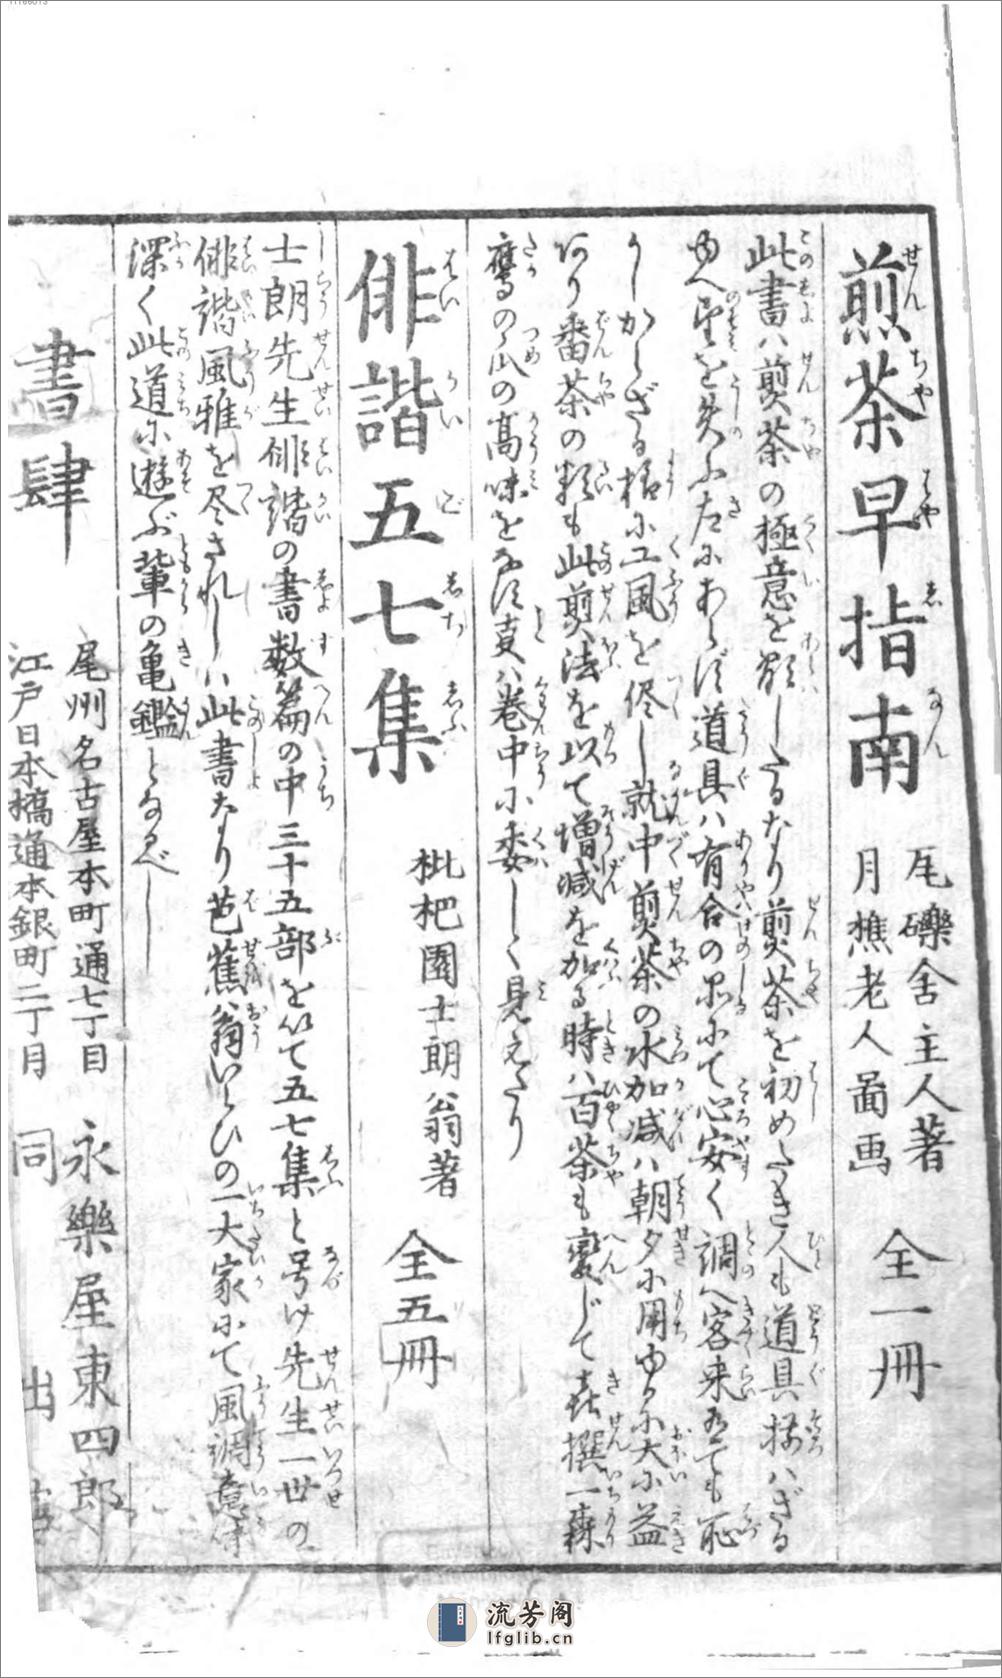 煎茶早指南
尾礫舎主人著
月樵老人啚画
全一冊
此書ハ煎茶の極意を顕したるなり煎茶を初めたき人も道具揃ハざる
ゆへ望を失ふ左にあらず道具ハ有合の品にて心安く調へ客来ても恥
しからざる様に工風を尽し就中煎茶の水加減ハ朝夕に用ゆるに大に益
あり番茶の類も此煎法を以て増減を加る時ハ百茶も変じて喜撰一森
鷹の爪の高味をなす
巻中に委しく見えたり
俳諧五七集
枇杷園士朗翁著
全五冊
士朗先生俳諧の書数篇の中三十五部を以て五七集と号け先生一世の
俳諧風雅を尽されしハ此書なり芭蕉翁
の一大家にて風調
深く此道に遊ぶ輩の亀鑑となるべし
書肆
尾州名古屋本町通七丁目
永樂屋東四郎
江戸日本橋通本銀町二丁目
同
出店
流芳阁
lfglib.cn